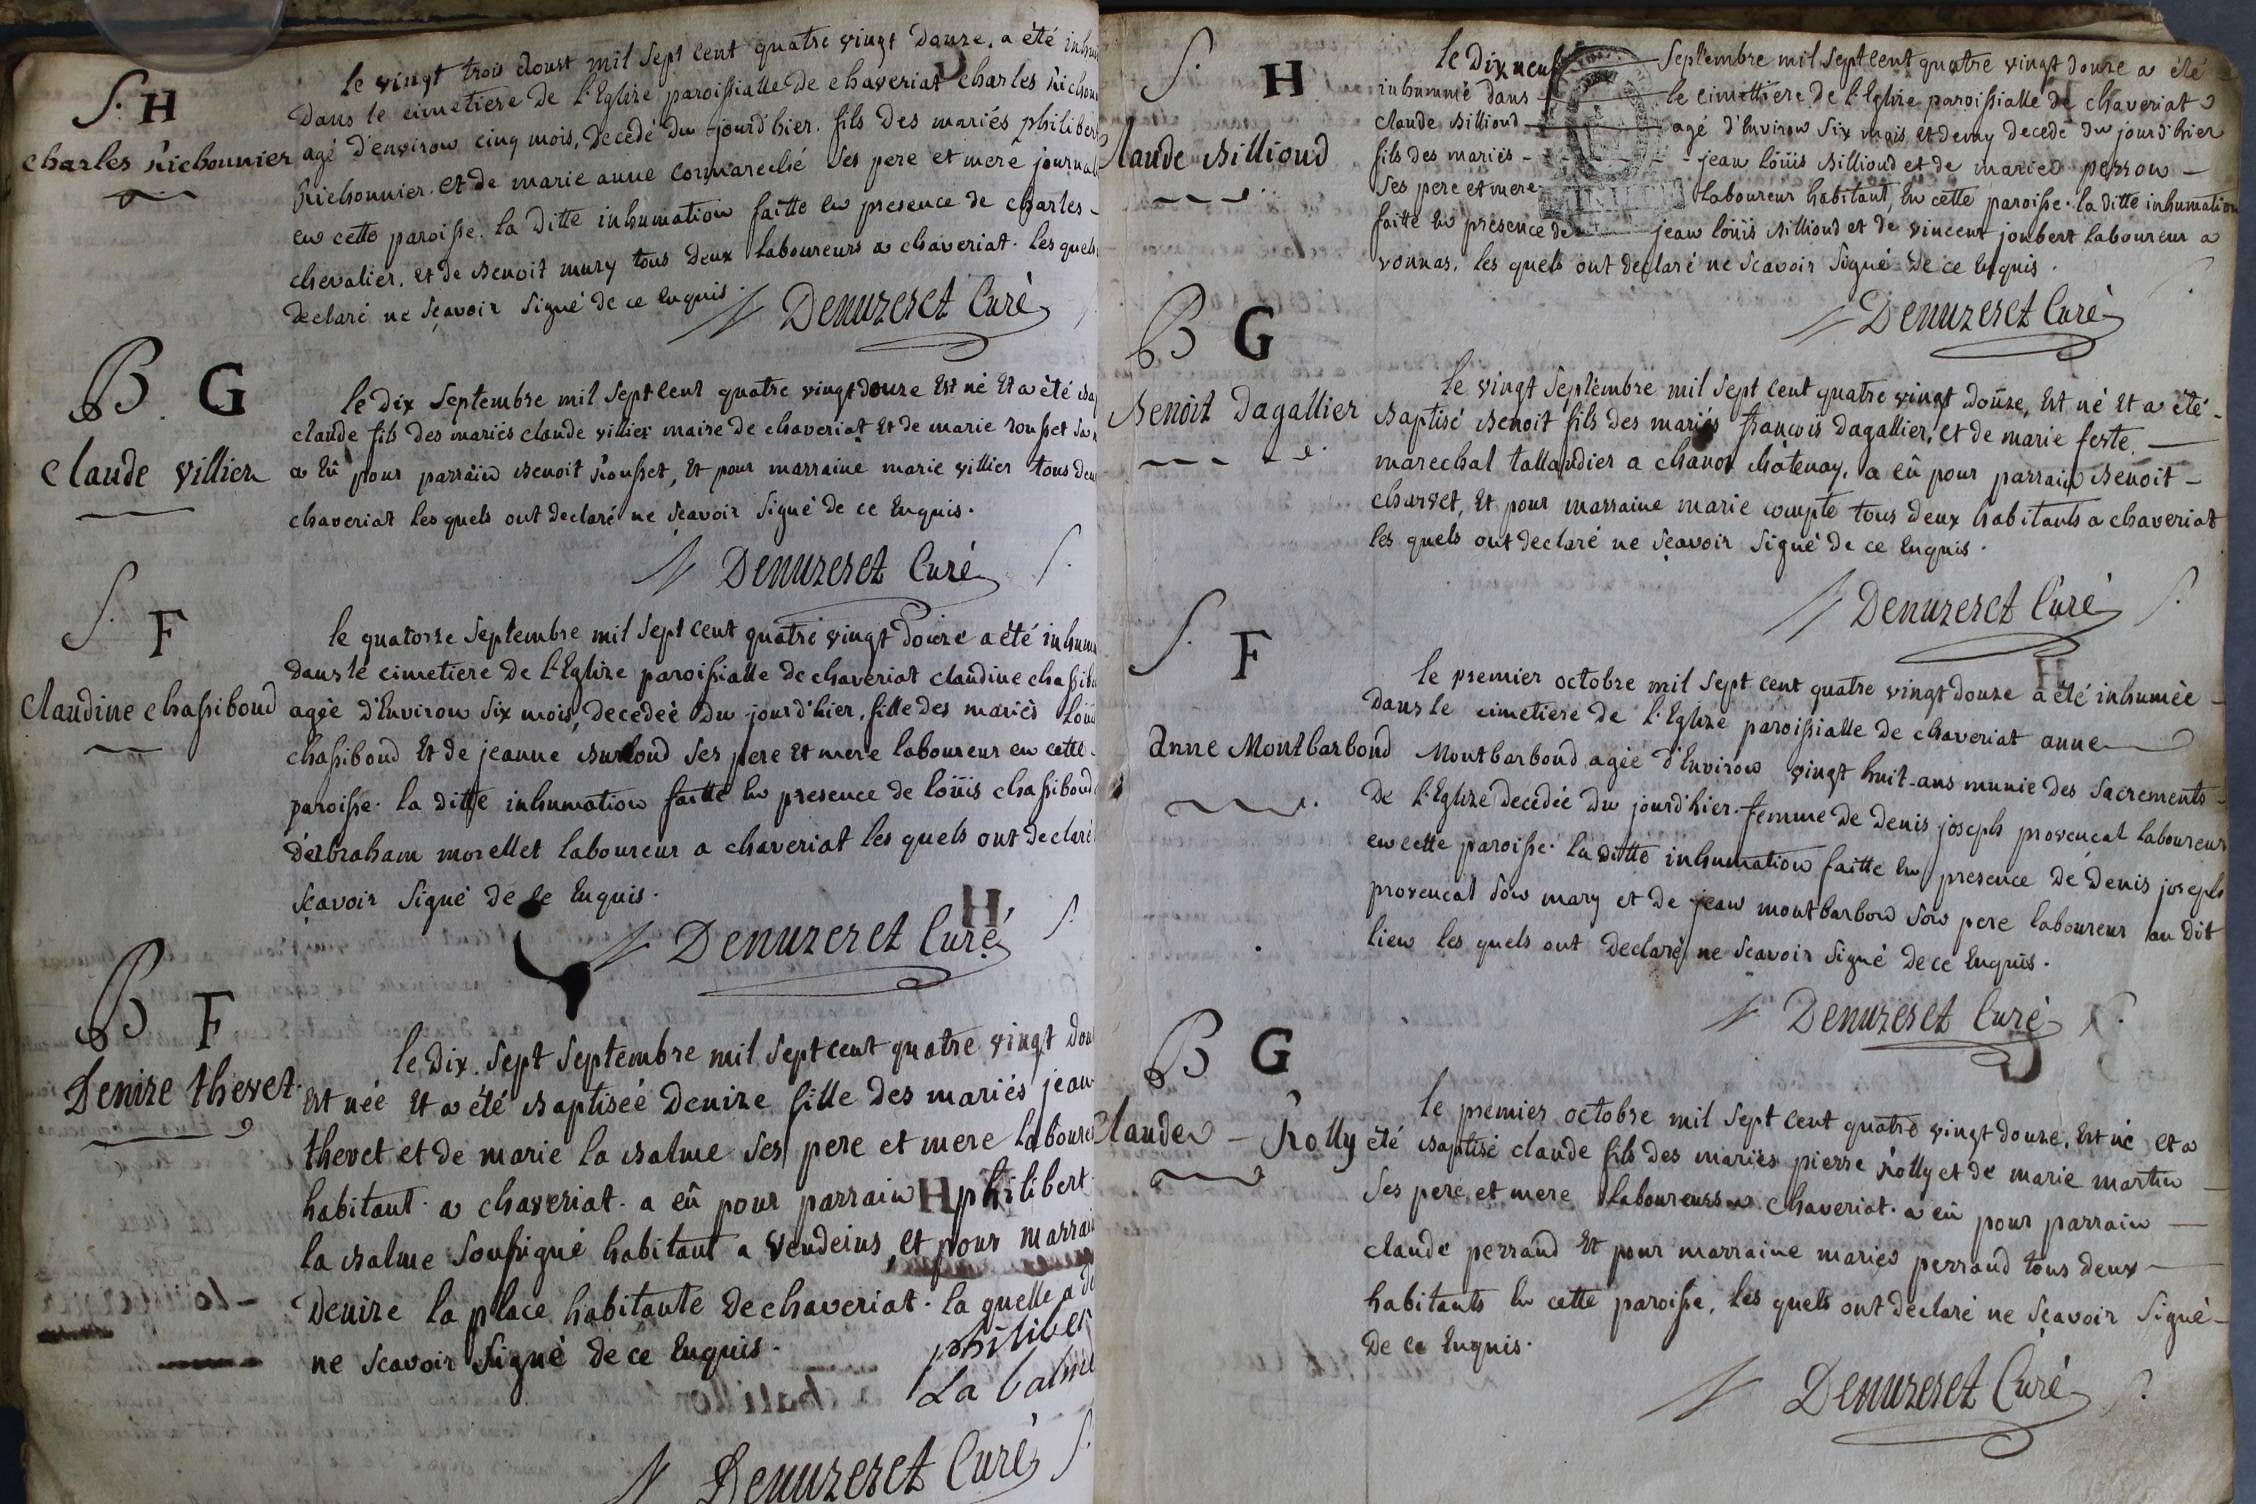 S. H
charles Richonnier
le vingt trois doust mil sept cent quatre vingt douze, a été
dans le cimetiere de l'Eglize paroissialle de chaveriat charles
agé d'environ cinq mois, decedé du jourd'hier. fils des mariés philibert
Richonnier. et de marie anne ses pere et mere
en cette paroisse. la ditte inhumation faitte en presence de charles -
chevalier. et de Benoit mury tous deux laboureurs a chaveriat. les quels
declaré ne sçavoir signé de ce Enquis.
Denuzeret Curé
B G
claude villier
le dix septembre mil sept cent quatre vingt douze Est né Et a été
claude fils des mariés claude villier maire de chaveriat Et de marie rousset
a Eû pour parrain Benoit rousset, Et pour marraine marie villier tous
chaveriat les quels ont declaré ne scavoir signé de ce Enquis.
Denuzeret Curé
S. F
Claudine chassiboud
le quatorze septembre mil sept cent quatre vingt douze a été
dans le cimetiere de l'Eglize paroissialle de chaveriat claudine
agée d'Environ six mois, decedeé du jourd'hier. fille des mariés
chassiboud Et de jeanne ses pere Et mere laboureur en cette
paroisse. la ditte inhumation faitte En presence de loüis chassiboud
d'abraham morellet laboureur a chaveriat les quels ont declaré
sçavoir signé de ce Enquis.
Denuzeret Curé
B F
Denize thevet.
le dix sept septembre mil sept cent quatre vingt
Est née Et a été Baptiseé denize fille des mariés jean
thevet et de marie la Balme ses pere et mere
habitant a chaveriat. a eû pour parrain philibert
la Balme soussigné habitant a Vendeins, et pour
denize la place habitante de chaveriat. la quelle a
ne scavoir signé de ce Enquis.
philibert
La balme
Denuzeret Curé
S. H
claude Billioud
le Dix neuf septembre mil sept cent quatre vingt douze a été
inhummé dans le cimettiere de l'Eglize paroissialle de chaveriat
claude Billioud agé d'Environ six mois et demy decede du jourd'hier
fils des mariés - jean loüis Billioud et de marie perron -
ses pere et mere laboureur habitant En cette paroisse. la ditte inhumation
faitte En presence de jean loüis Billioud et de vincent joubert laboureur a
vonnas. les quels ont declaré ne scavoir signé de ce Enquis.
Denuzeret Curé
B G
Benoît Dagallier
le vingt septembre mil sept cent quatre vingt doüze, Est né Et a été -
Baptisé Benoit fils des mariés françois dagallier, et de marie feste.
marechal tallandier a chanox châtenay, a eû pour parrain Benoit -
charvet, Et pour marraine marie compte tous deux habitants a chaveriat
les quels ont declaré ne sçavoir signé de ce Enquis.
Denuzeret Curé
S. F
Anne Montbarbond
le premier octobre mil sept cent quatre vingt douze a été inhumée -
dans le cimetiere de l'Eglize paroissialle de chaveriat anne
Montbarbond agée d'Environ vingt huit ans munie des sacrements -
de l'Eglize decedée du jourd'hier. femme de denis joseph provencal laboureur
en cette paroisse. la ditte inhumation faitte En presence de denis joseph
provencal son mary et de jean montbarbon son pere laboureur au dit
lieu les quels ont declaré ne scavoir signé de ce Enquis.
Denuzeret Curé
B G
claude - Rolly
le premier octobre mil sept cent quatre vingt douze, Est né et a
été Baptisé claude fils des mariés pierre Rolly et de marie martin
ses pere et mere laboureurs a chaveriat. a eû pour parrain
claude perrand Et pour marraine marie perrand tous deux
habitants En cette paroisse, les quels ont declaré ne sçavoir signé -
de ce Enquis.
Denuzeret Curé